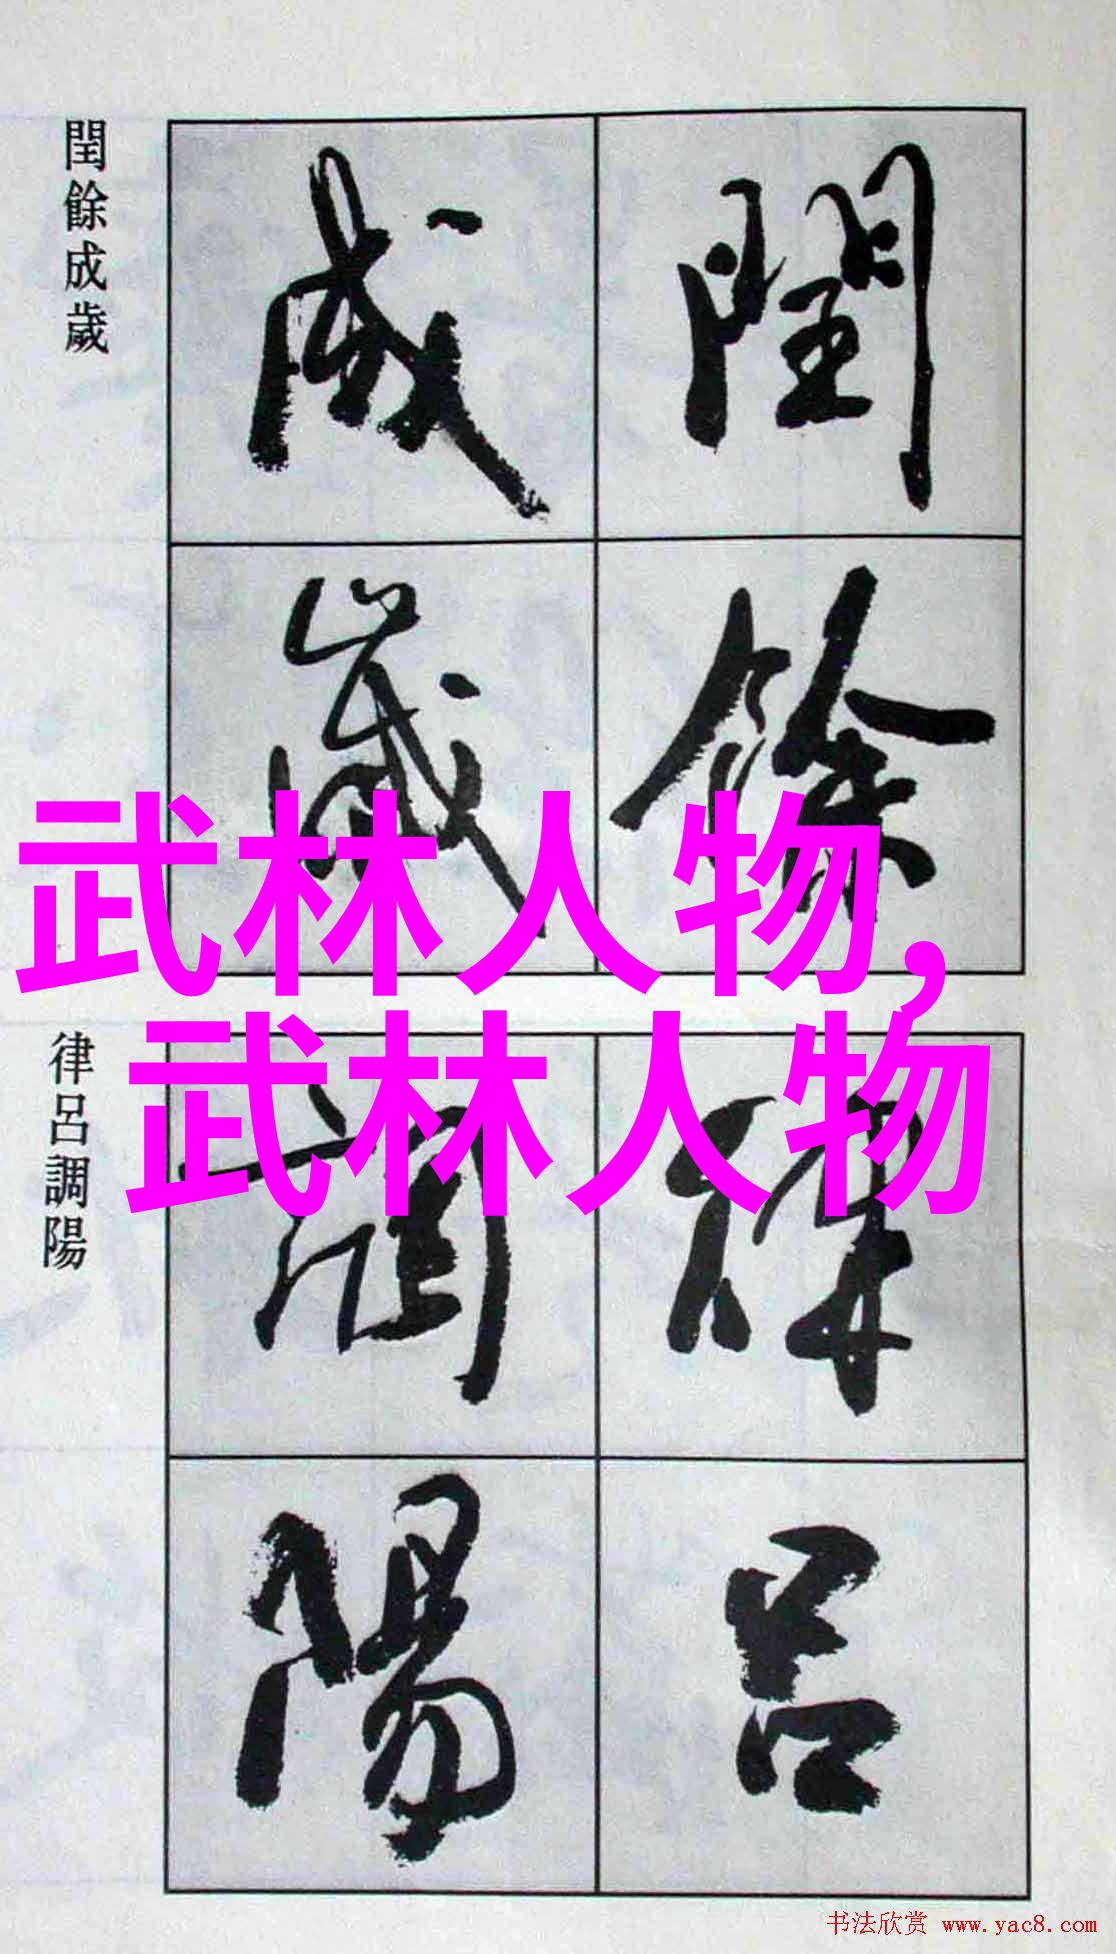 閏餘成歲
閏餘
成歲
武林人物,
武林人物
律呂調陽
律呂
調陽
书法欣赏 www.yac8.com